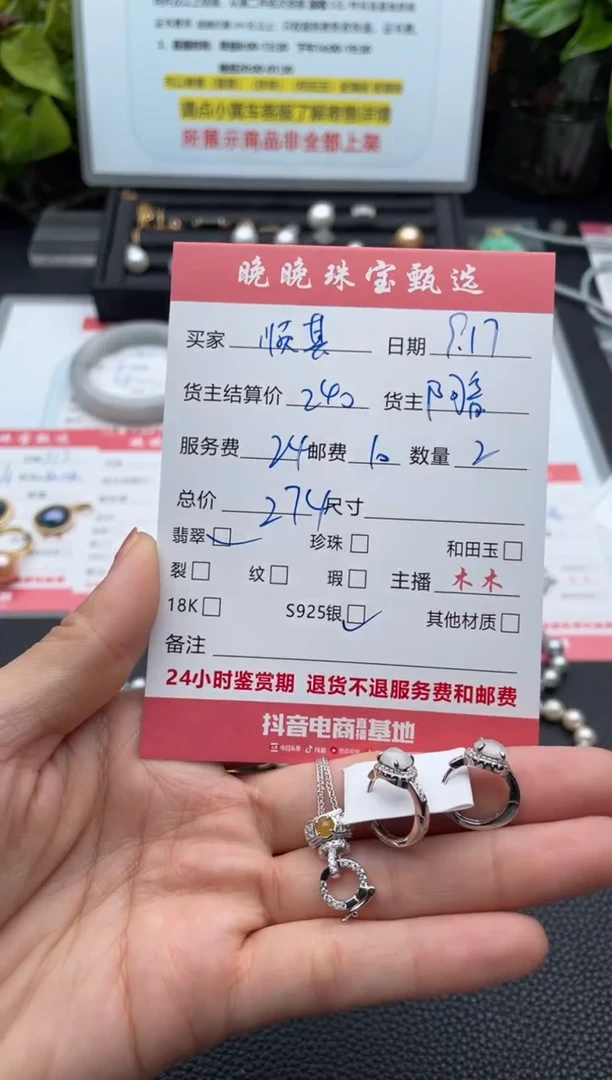 请点小黄车客服了解兼售详情
所展示商品非全部上架
晚晚珠宝甄选
买家 顺其 日期 9.17
货主结算价 240 货主
服务费 24 邮费 10 数量 2
总价 274 尺寸
翡翠 珍珠 和田玉
裂 纹 瑕 主播 木木
18K S925银 其他材质
备注
24小时鉴赏期 退货不退服务费和邮费
抖音电商直播基地
今日头条 抖音